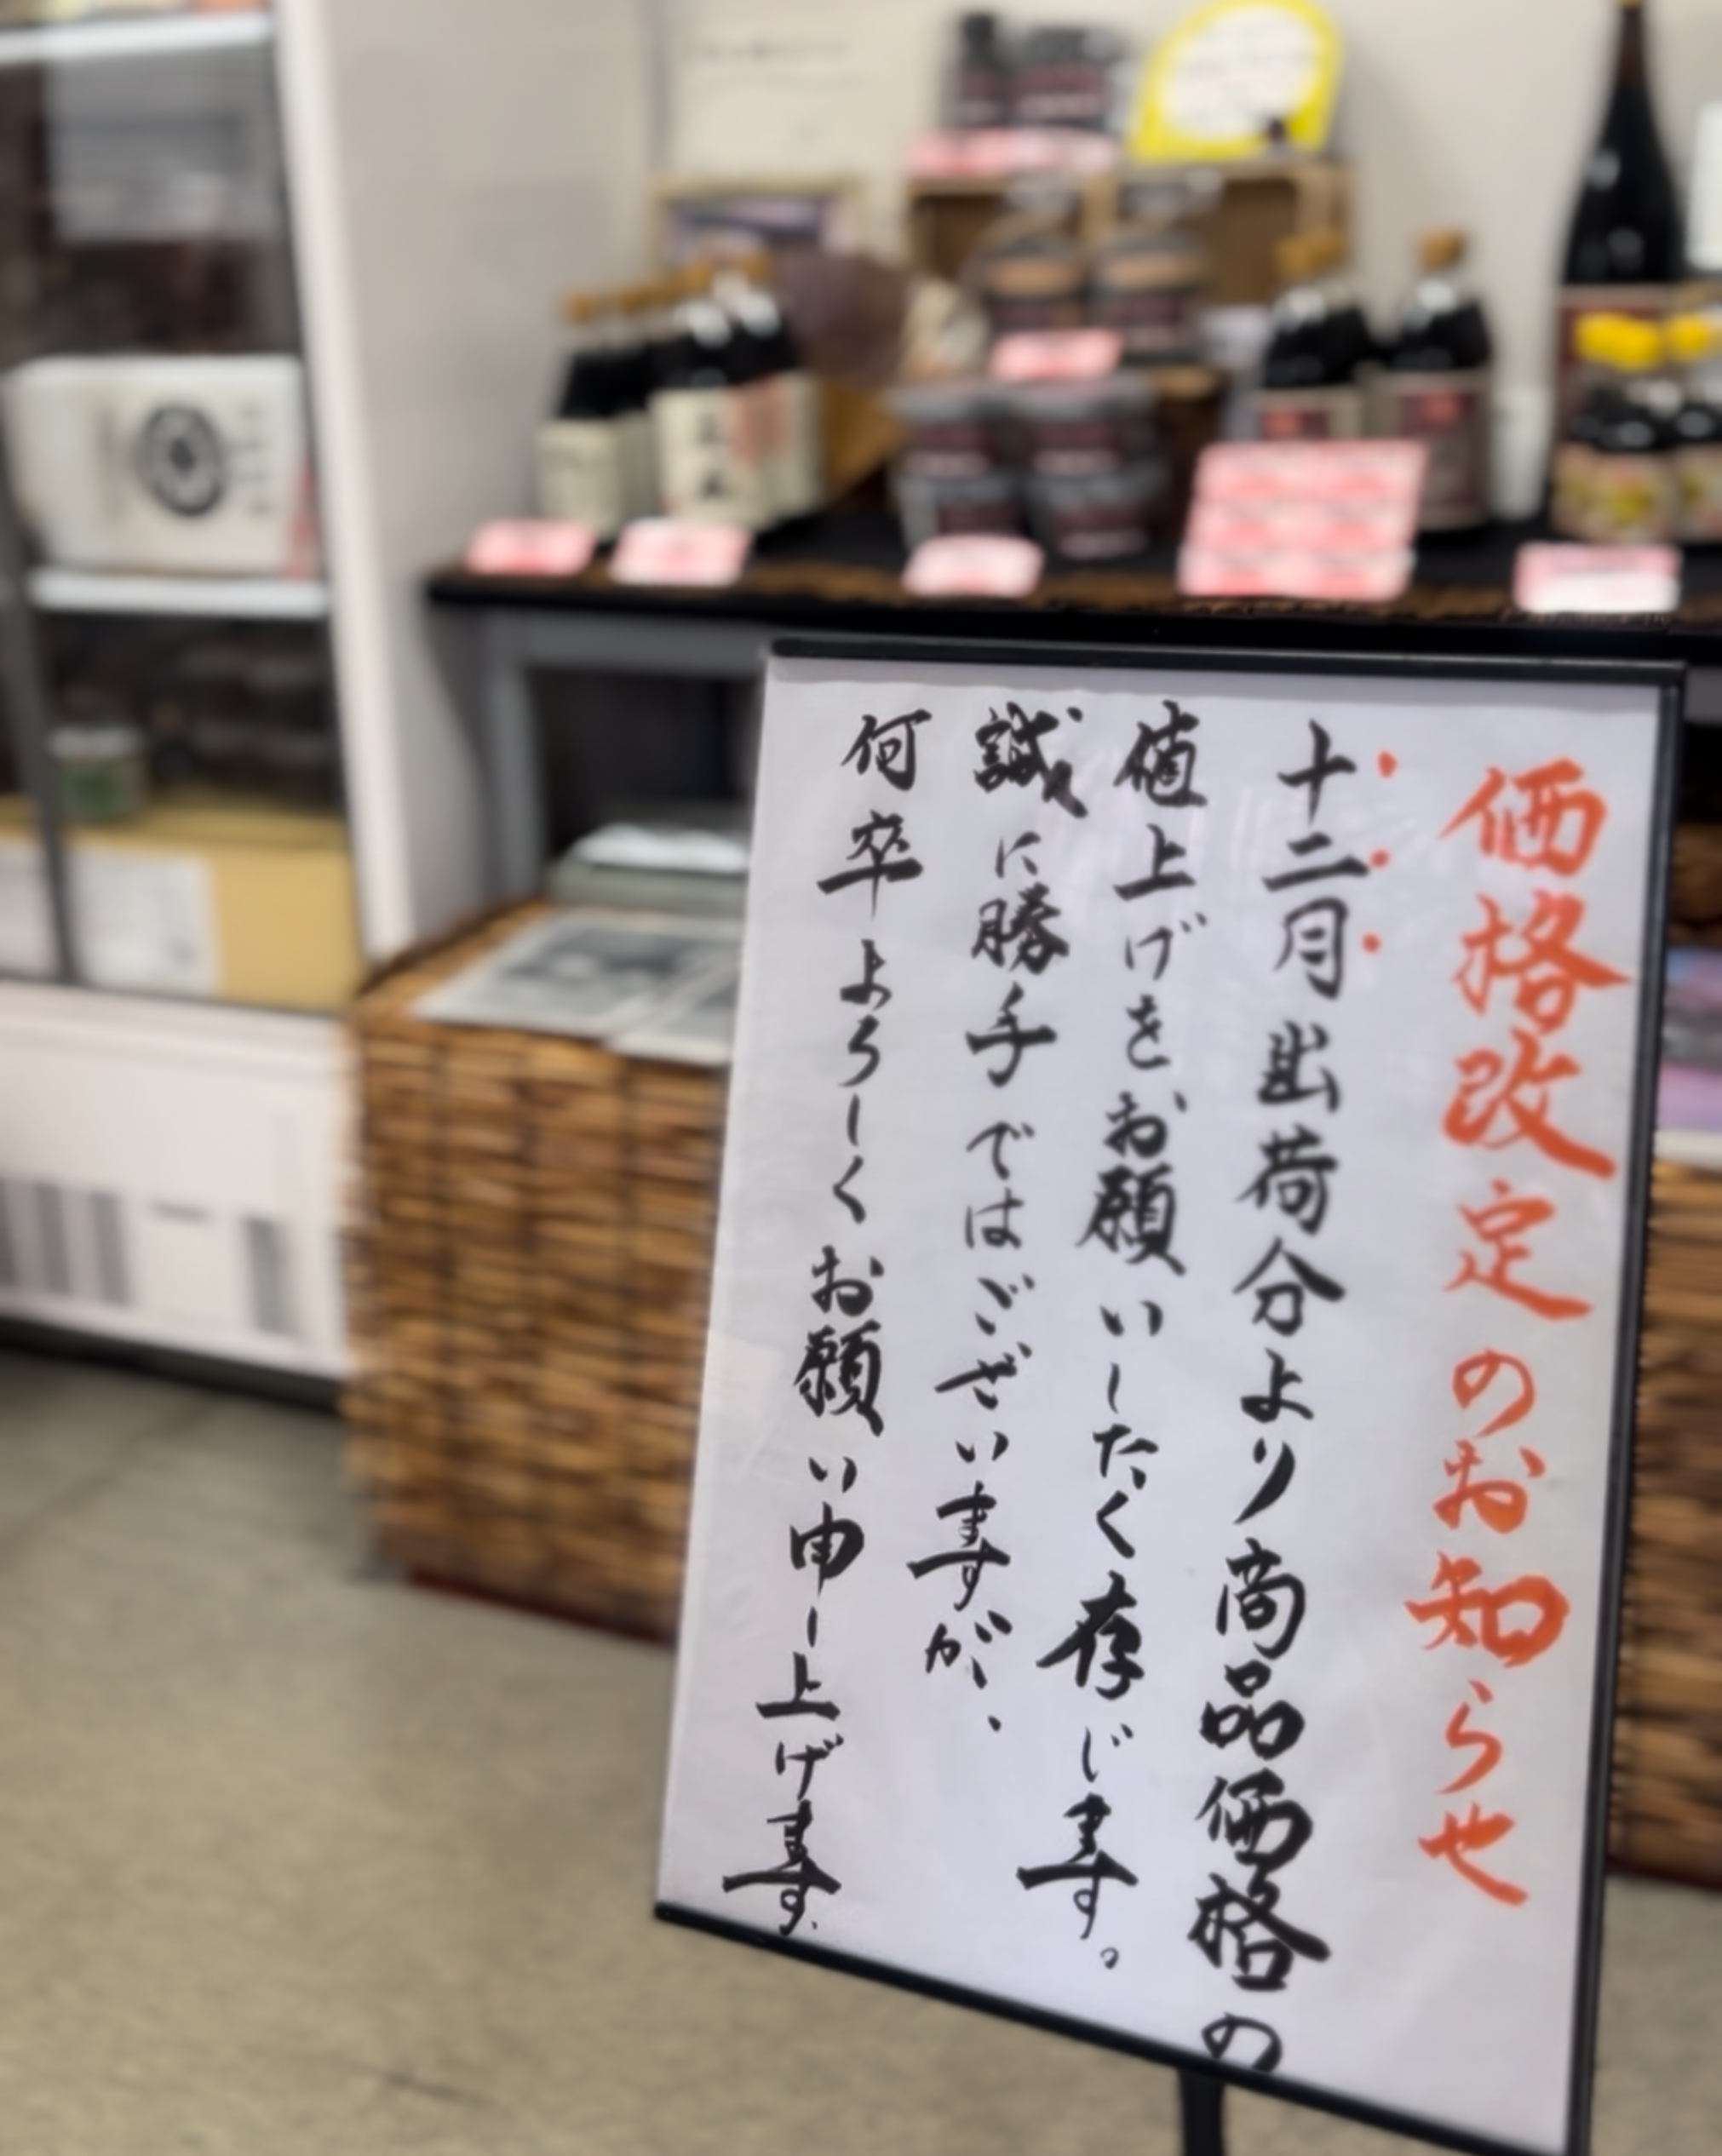 価格改定のお知らせ
十二月出荷分より商品価格の
値上げをお願いしたく存じます。
誠に勝手ではございますが、
何卒よろしくお願い申し上げます.